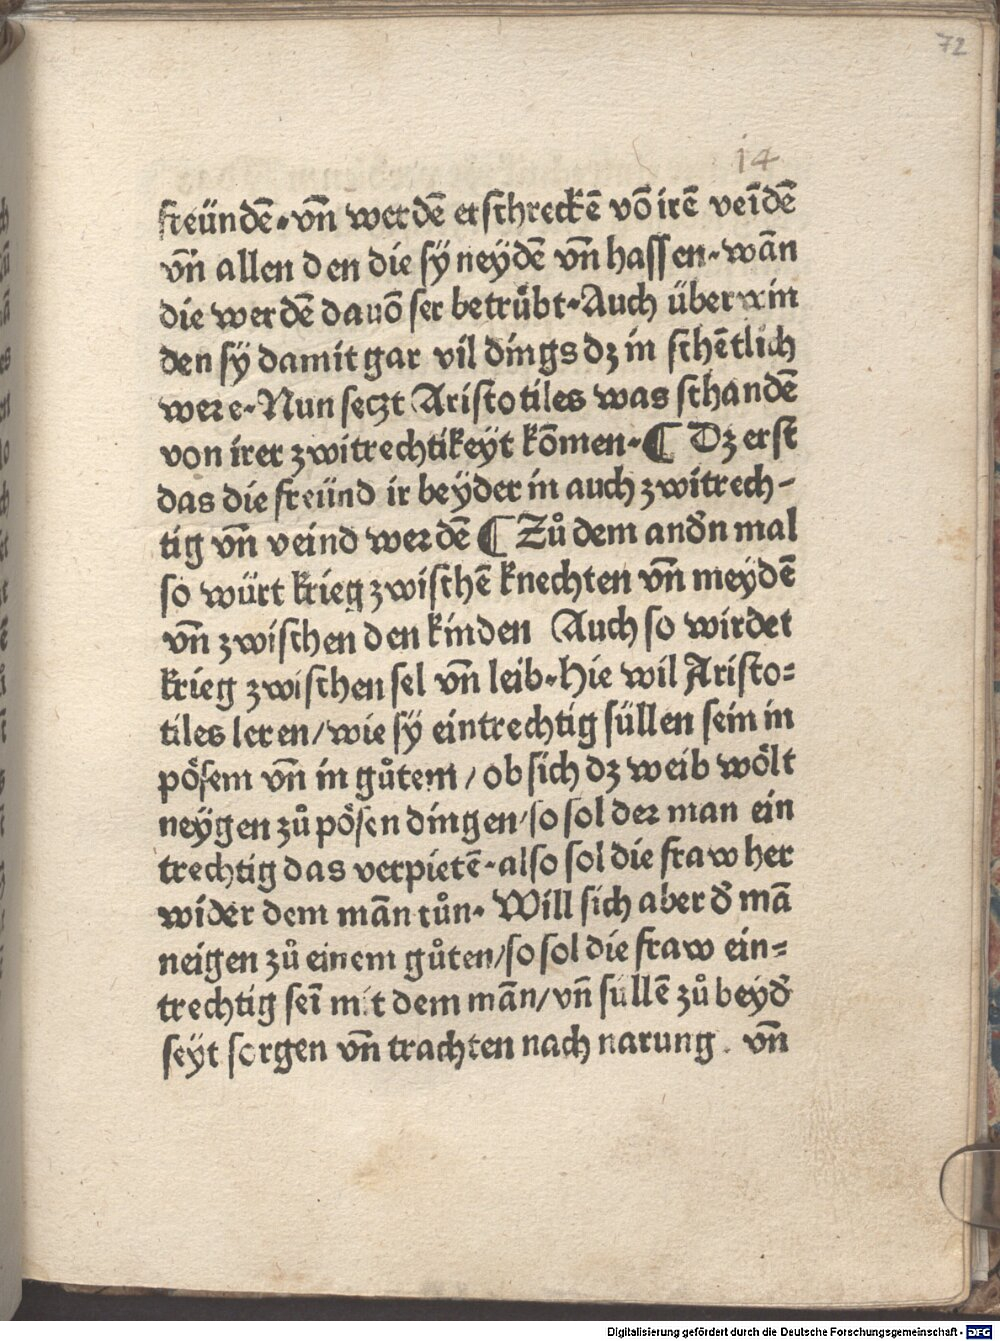 72
14
freündē. vn̄ werdē erschreckē vō irē veīdē
vn̄ allen den die sÿ neydē vn̄ hassen. wān
die werdē dauō ser betru̇bt. Auch überwin
den sÿ damit gar vil dings dz in schētlich
were. Nun seczt Aristotiles was schandē
von irer zwitrechtikeyt kōmen. ¶ Dz erst
das die freünd ir beÿder in auch zwitrech-
tig vn̄ veind werdē ¶ Zů dem andn̄ mal
so würt krieg zwischē knechten vn̄ meydē
vn̄ zwischen den kinden Auch so wirdet
krieg zwischen sel vn̄ leib. Hie wil Aristo-
tiles leren/ wie sÿ eintrechtig süllen sein in
pösem vn̄ in gůtem/ ob sich dz weib wölt
neÿgen zů pösen dingen/ so sol der man ein
trechtig das verpietē. also sol die fraw her
wider dem mān tůn. Will sich aber d̄ mā
neigen zů einem gůten/ so sol die fraw ein-
trechtig seī mit dem mān/ vn̄ süllē zů beyd̄
seÿt sorgen vn̄ trachten nach narung. vn̄
Digitalisierung gefördert durch die Deutsche Forschungsgemeinschaft - DFG